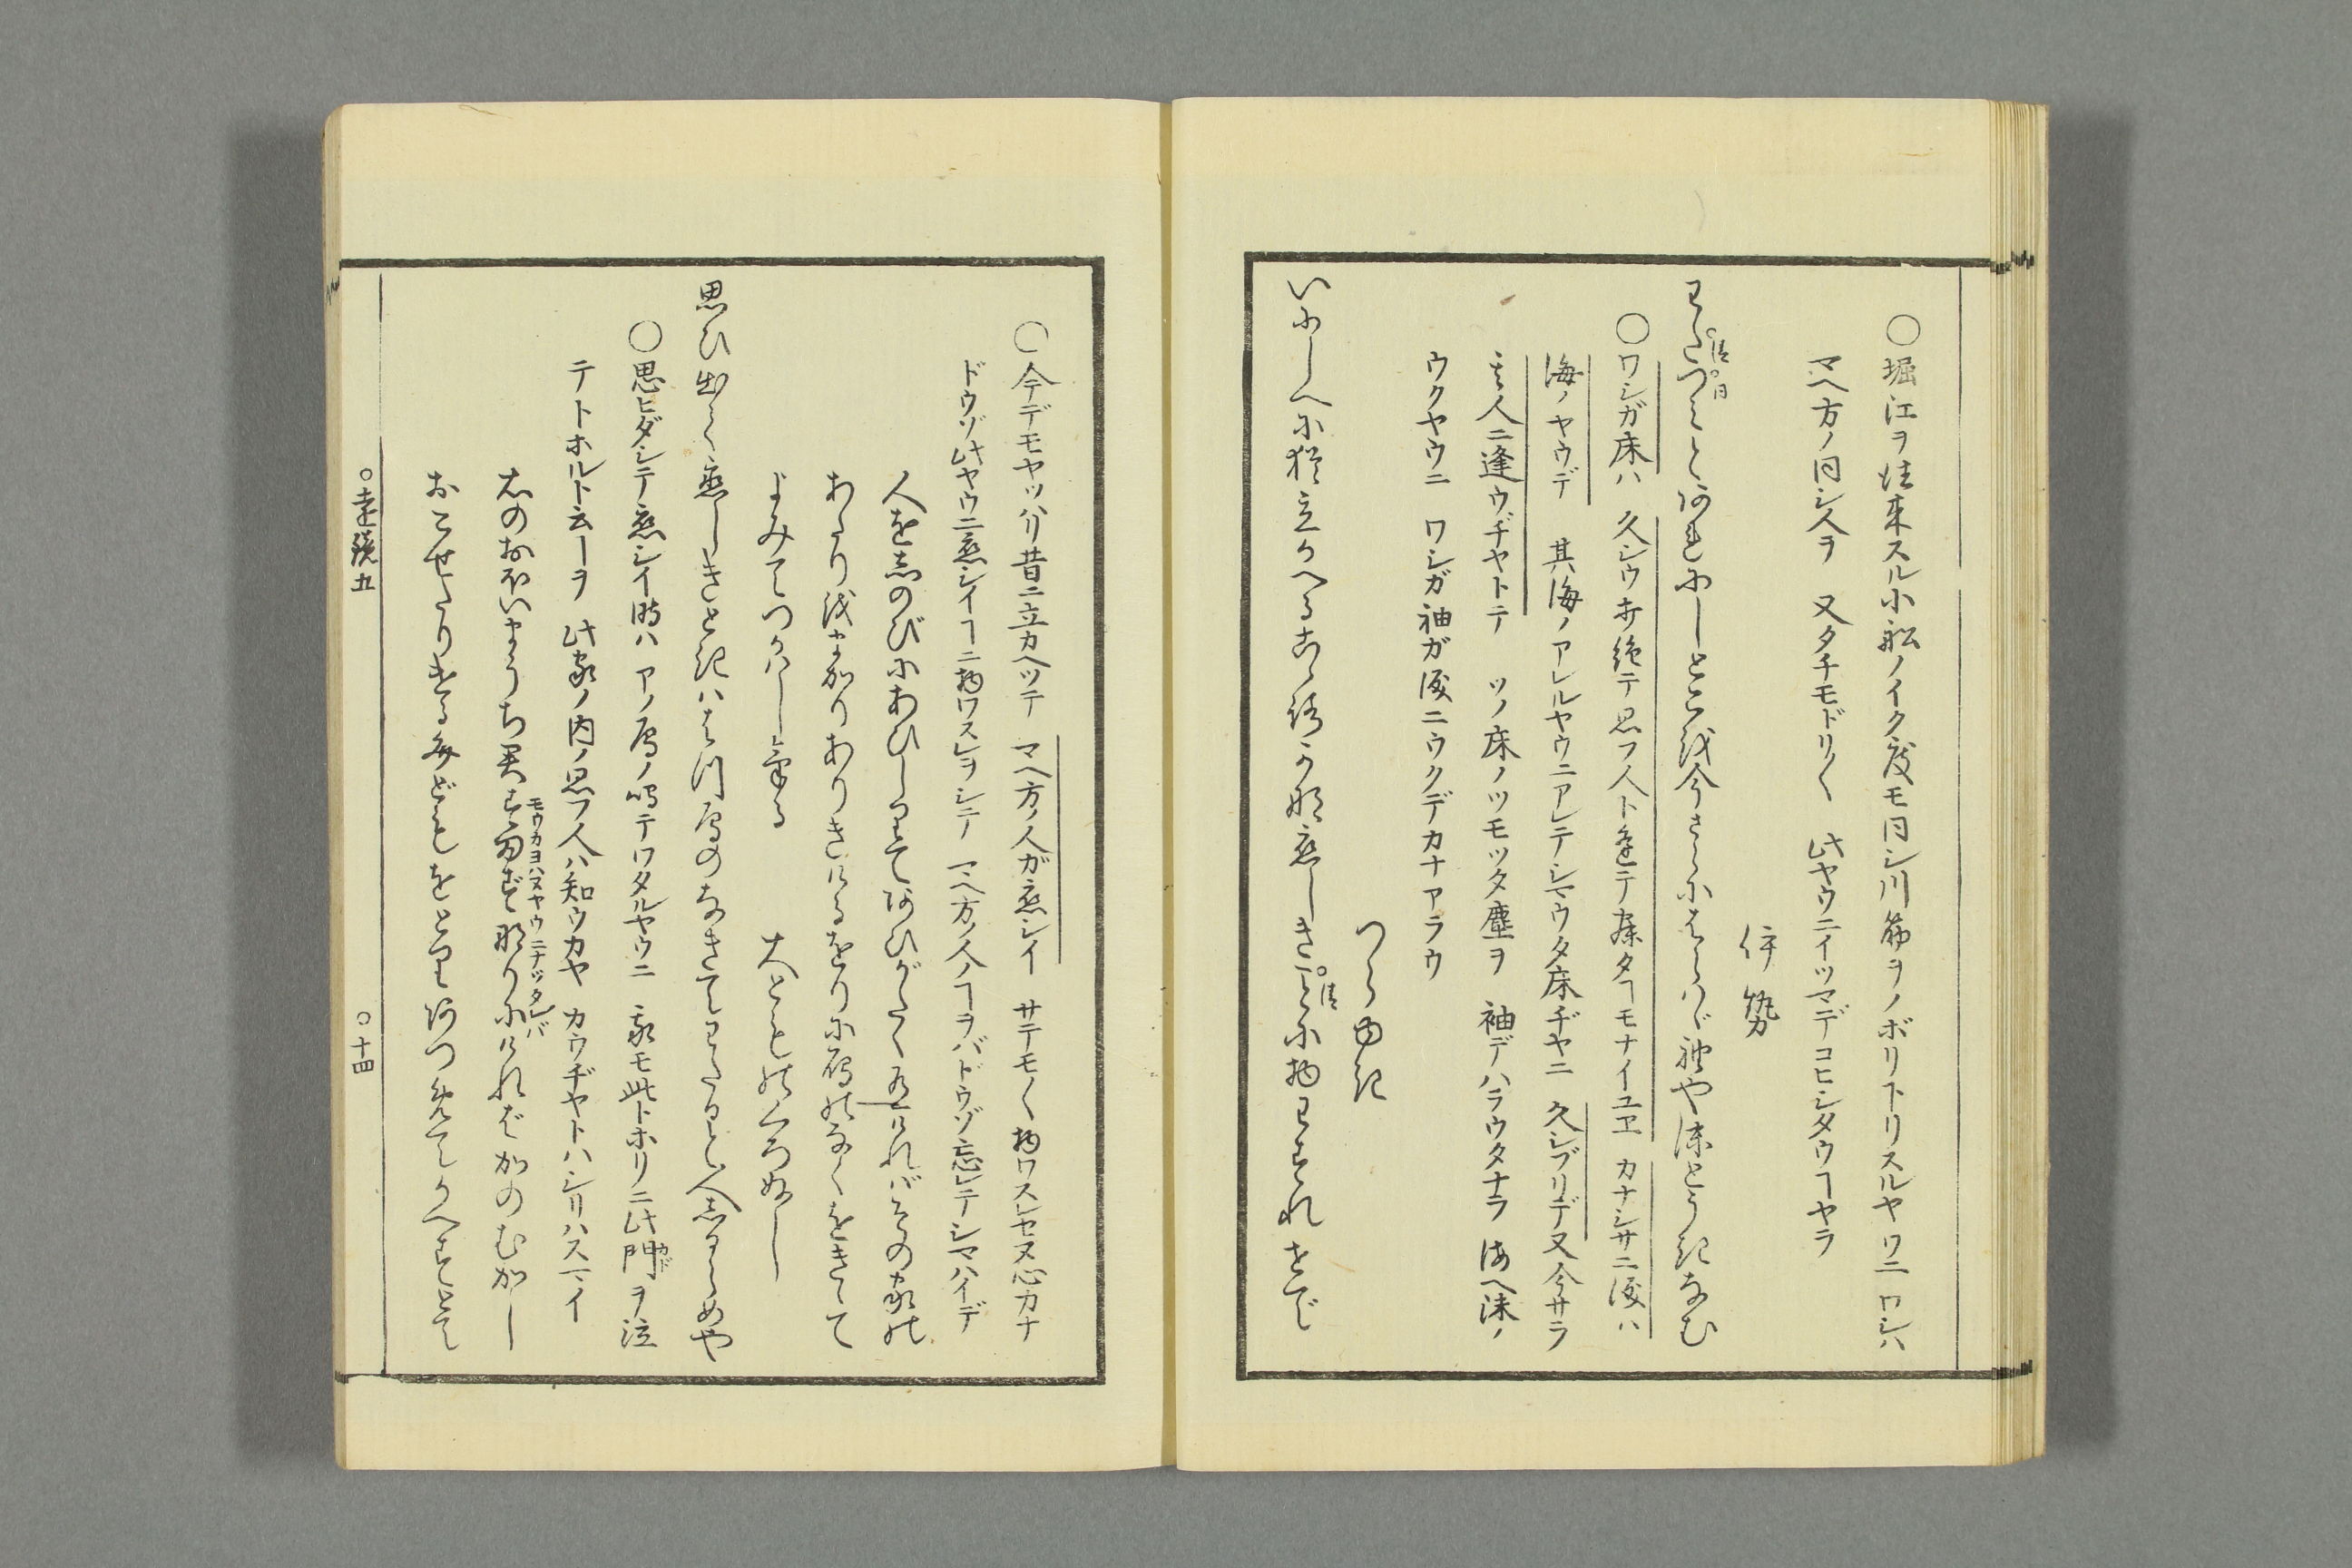 ○堀江ヲ往来スル小舩ノイク度モ同シ川筋ヲノボリ下リスルヤウニ ワシハ
マヘ方ノ同シ人ヲ 又タチモドリ〱 此ヤウニイツマデコヒシタウヿヤラ
伊勢
わたつみとあれにしとこを今さらにはらはゞ袖や沫とうきなむ
○ワシガ床ハ 久シウ中絶テ思フ人ト逢テ寐タヿモナイユヱ カナシサニ涙ハ
海ノヤウデ 其海ノアレルヤウニアレテシマウタ床ヂヤニ 久シブリデ又今サラ
其人ニ逢ウヂヤトテ ソノ床ノツモツタ塵ヲ 袖デハラウタナラ 海ヘ沫ノ
ウクヤウニ ワシガ袖ガ涙ニウクデカナアラウ
つらゆき
いにしへに猶立かへるこゝろかな恋しきことに物わすれせで
○今デモヤツハリ昔ニ立カヘツテ マヘ方ノ人ガ恋シイ サテモ〱物ワスレセヌ心カナ
ドウゾ此ヤウニ恋シイヿニ物ワスレヲシテ マヘ方ノ人ノヿヲバドウゾ忘レテシマハイデ
人をしのびにあひしりてあひがたく有ければその家の
あたりをまかりありきけるをりに雁のなくをきゝて
よみてつかはしける
大とものくろぬし
思ひ出て恋しきときははつ雁のなきてわたると人しるらめや
○思ヒダシテ恋シイ時ハ アノ雁ノ鳴テワタルヤウニ 我モ此トホリニ此門ヲ泣
カド
テトホルト云ヿヲ 此家ノ内ノ思フ人ハ知ウカヤ カウヂヤトハシリハスマイ
右のおほいまうち君すまずなりにければかのむかし
モウカヨハヌヤウニナツタレバ
おこせたりける文どもをとりあつめてかへすとて
○遠鏡五
○十四